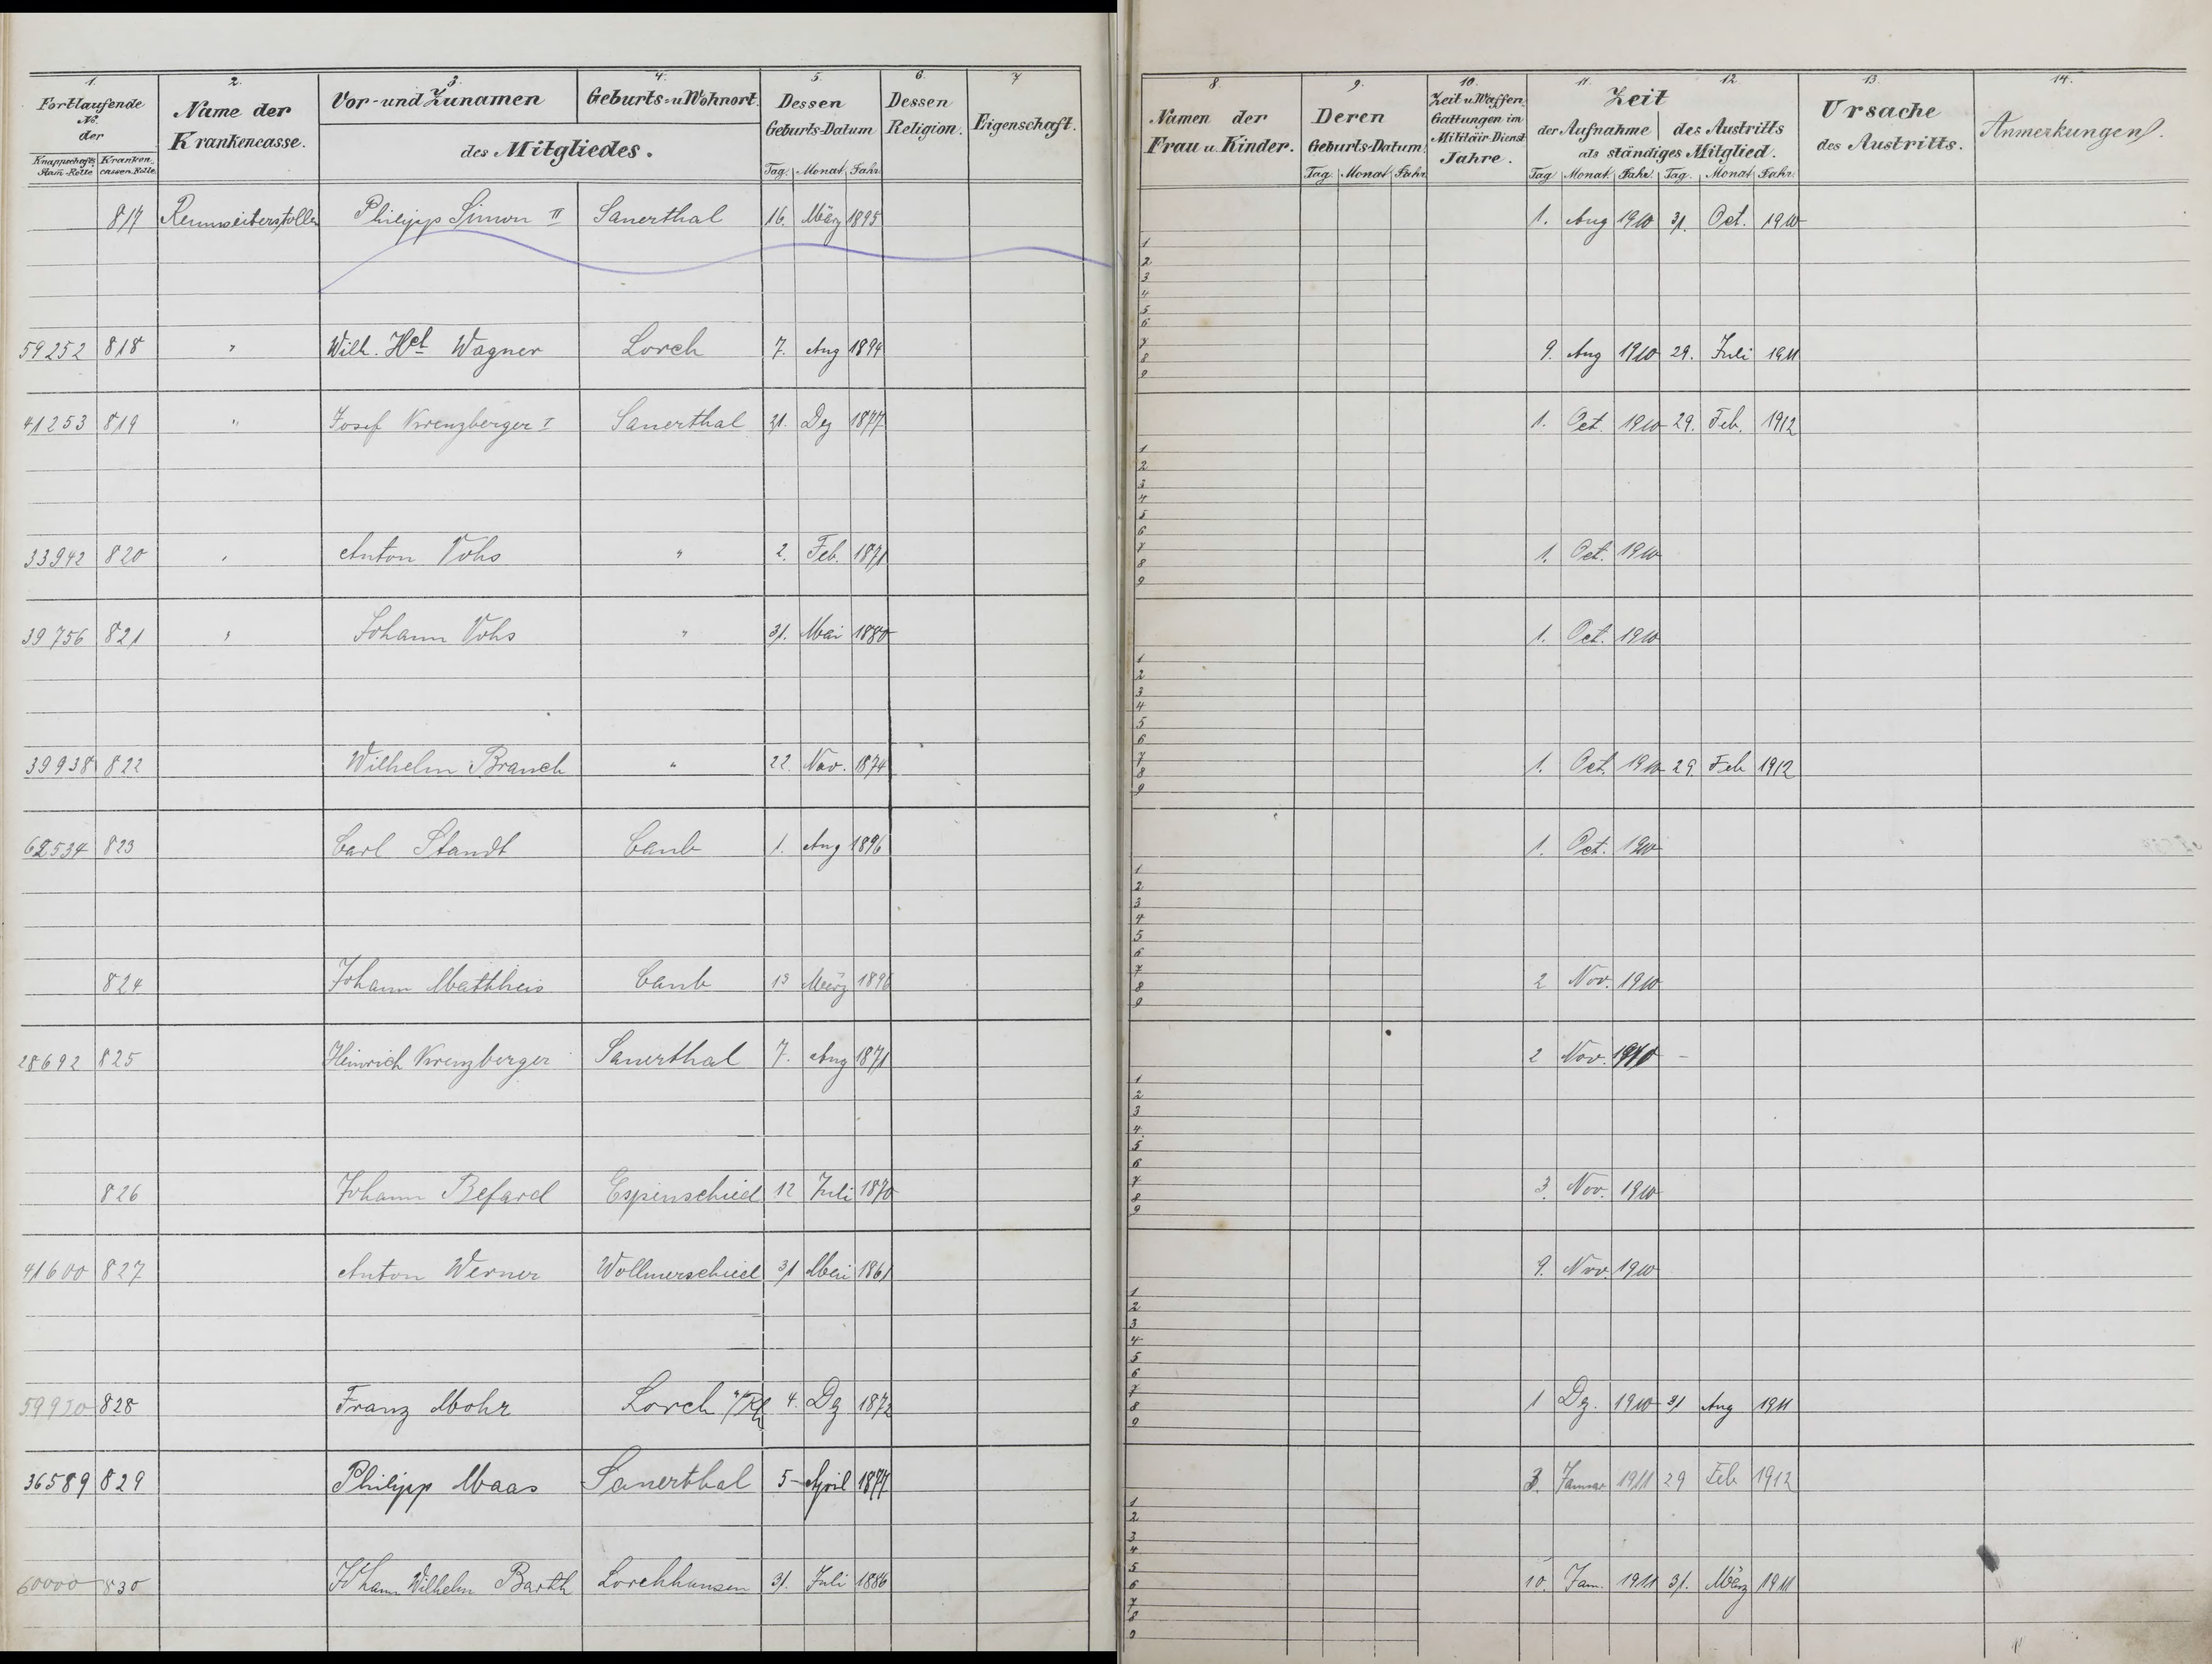 1. 2. 3. 4. 5. 6. 7
Fortlaufende No. der
Knappschafts Stam-Rolle Kranken-cassen-Rolle
Name der Krankencasse.
Vor- und Zunamen
Geburts- u Wohnort.
des Mitgliedes.
Dessen Geburts-Datum
Tag. Monat Jahr.
Dessen Religion.
Eigenschaft.
8. 9. 10. 11. 12. 13. 14.
Namen der Frau u. Kinder.
Deren Geburts-Datum.
Tag. Monat Jahr.
Zeit u Waffen Gattungen im Militair-Dienst Jahre.
Zeit
der Aufnahme des Austritts
als ständiges Mitglied.
Tag. Monat. Jahr. Tag. Monat Jahr.
Ursache des Austritts.
Anmerkungen.
817 Rennseiterstollen Philipp Simon II Sauerthal 16. März 1895 1. Aug 1910 31. Oct. 1910
59252 818 " Wilh. Hch Wagner Lorch 7. Aug 1894 9. Aug 1910 29. Juli 1911
41253 819 " Josef Kreuzberger I Sauerthal 21. Dez 1877 1. Oct. 1910 29. Feb. 1912
33942 820 " Anton Vohs " 2. Feb. 1871 1. Oct. 1910
39756 821 " Johann Vohs " 31. Mai 1880 1. Oct. 1910
39938 822 Wilhelm Brauch " 22. Nov. 1874 1. Oct. 1910 29. Feb 1912
62534 823 Carl Staudt Caub 1. Aug 1896 1. Oct. 1910
824 Johann Mathheis Caub 13 März 1896 2 Nov. 1910
28692 825 Heinrich Kreuzberger Sauerthal 7. Aug 1871 2 Nov. 1910 -
826 Johann Befard Espenschied 12 Juli 1870 3. Nov. 1910
41600 827 Anton Werner Wollmerschied 31 Mai 1861 9. Nov. 1910
59920 828 Franz Mohr Lorch a/Rh 4. Dz 1872 1 Dz. 1910 31 Aug 1911
36589 829 Philipp Maas Sauerthal 5 April 1877 3. Januar 1911 29 Feb 1912
60000 830 Johann Wilhelm Barth Lorchhausen 31. Juli 1886 10. Jan. 1911 31. März 1911
1
2
3
4
5
6
7
8
9
1
2
3
4
5
6
7
8
9
1
2
3
4
5
6
7
8
9
1
2
3
4
5
6
7
8
9
1
2
3
4
5
6
7
8
9
1
2
3
4
5
6
7
8
9
1
2
3
4
5
6
7
8
9